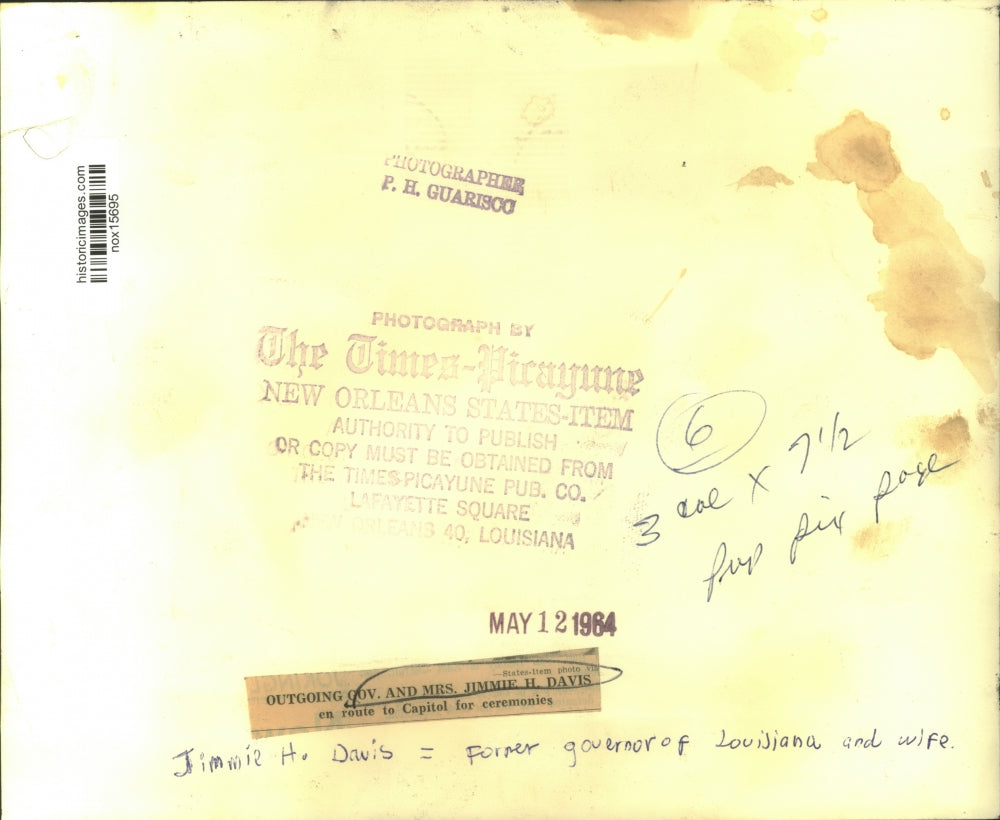 historicimages.com
nox15695
PHOTOGRAPHER
P. H. GUARISCO
PHOTOGRAPH BY
The Times-Picayune
NEW ORLEANS STATES-ITEM
AUTHORITY TO PUBLISH
OR COPY MUST BE OBTAINED FROM
THE TIMES-PICAYUNE PUB. CO.
LAFAYETTE SQUARE
NEW ORLEANS 40, LOUISIANA
6
3 col X 7 1/2
pix page
MAY 12 1964
—States-Item photo via
OUTGOING GOV. AND MRS. JIMMIE H. DAVIS
en route to Capitol for ceremonies
Jimmie H. Davis = Former governor of Louisiana and wife.